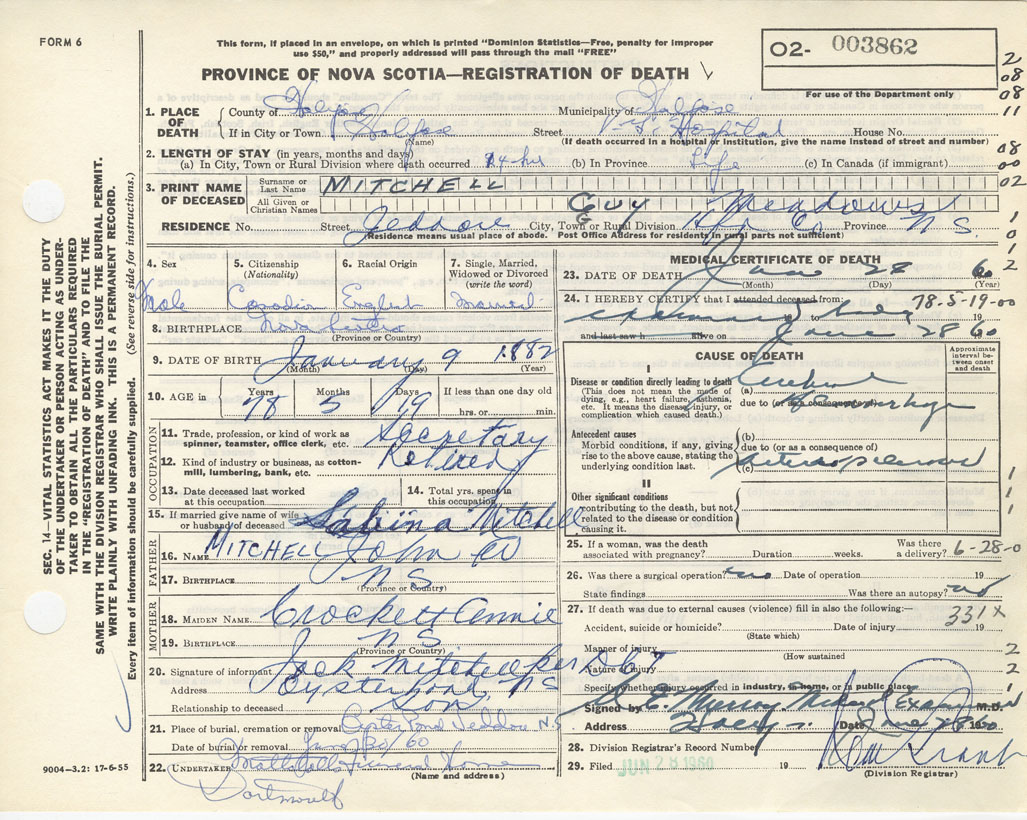 FORM 6
This form, if placed in an envelope, on which is printed "Dominion Statistics—Free, penalty for improper
use $50," and properly addressed will pass through the mail "FREE"
PROVINCE OF NOVA SCOTIA—REGISTRATION OF DEATH
O2- 003862
For use of the Department only
2
08
08
11
08
00
02
1
0
1
2
SEC. 14—VITAL STATISTICS ACT MAKES IT THE DUTY
OF THE UNDERTAKER OR PERSON ACTING AS UNDER-
TAKER TO OBTAIN ALL THE PARTICULARS REQUIRED
IN THE "REGISTRATION OF DEATH" AND TO FILE THE
SAME WITH THE DIVISION REGISTRAR WHO SHALL ISSUE THE BURIAL PERMIT.
WRITE PLAINLY WITH UNFADING INK. THIS IS A PERMANENT RECORD.
Every item of information should be carefully supplied. (See reverse side for instructions.)
1. PLACE OF DEATH
County of Halifax Municipality of Halifax
If in City or Town Halifax Street V. G. Hospital House No.
(Name) (If death occurred in a hospital or institution, give the name instead of street and number)
2. LENGTH OF STAY (in years, months and days)
(a) In City, Town or Rural Division where death occurred 14 hr (b) In Province Life (c) In Canada (if immigrant)
3. PRINT NAME OF DECEASED
Surname or Last Name MITCHELL
All Given or Christian Names GUY Meadows
RESIDENCE No. Street Jeddore City, Town or Rural Division Hfx Co Province N S.
(Residence means usual place of abode. Post Office Address for residents in rural parts not sufficient)
4. Sex Male
5. Citizenship (Nationality) Canadian
6. Racial Origin English
7. Single, Married, Widowed or Divorced (write the word) Married
8. BIRTHPLACE Nova Scotia
(Province or Country)
9. DATE OF BIRTH January 9 1882
(Month) (Day) (Year)
10. AGE in Years 78 Months 5 Days 19 If less than one day old hrs. or min.
OCCUPATION
11. Trade, profession, or kind of work as spinner, teamster, office clerk, etc. Secretary
12. Kind of industry or business, as cotton-mill, lumbering, bank, etc. Retired
13. Date deceased last worked at this occupation
14. Total yrs. spent in this occupation
15. If married give name of wife or husband of deceased Sabina Mitchell
FATHER
16. NAME MITCHELL John W
17. BIRTHPLACE N S
(Province or Country)
MOTHER
18. MAIDEN NAME Crockett Annie
19. BIRTHPLACE N S
(Province or Country)
20. Signature of informant Jack Mitchell
Address Oyster Pond, N S
Relationship to deceased Son
21. Place of burial, cremation or removal Oyster Pond Jeddore N.S
Date of burial or removal June 30/60
22. UNDERTAKER Funeral Home
(Name and address)
Dartmouth
9004-3.2: 17-6-55
MEDICAL CERTIFICATE OF DEATH
23. DATE OF DEATH June 28 60
(Month) (Day) (Year)
24. I HEREBY CERTIFY that I attended deceased from: 78-5-19-00
to body 19
and last saw h alive on June 28 60
CAUSE OF DEATH
Approximate interval between onset and death
I
Disease or condition directly leading to death
(This does not mean the mode of dying, e.g., heart failure, asthenia, etc. It means the disease, injury, or complication which caused death.)
(a) Cerebral
due to (or as a consequence of) Hemorrhage
Antecedent causes
Morbid conditions, if any, giving rise to the above cause, stating the underlying condition last.
(b)
due to (or as a consequence of)
(c) Arteriosclerosis
II
Other significant conditions
contributing to the death, but not related to the disease or condition causing it.
1
1
1
25. If a woman, was the death associated with pregnancy? Duration weeks. Was there a delivery? 6-28-0
26. Was there a surgical operation? no Date of operation 19
State findings Was there an autopsy? no
27. If death was due to external causes (violence) fill in also the following:—
331X
Accident, suicide or homicide? Date of injury 19
(State which)
Manner of injury 2
(How sustained)
Nature of injury 2
Specify whether injury occurred in industry, in home, or in public place 1
Signed by E. Murray Medical Examiner M.D.
Address Date June 28 1960
28. Division Registrar's Record Number
29. Filed JUN 28 1960 19
(Division Registrar)